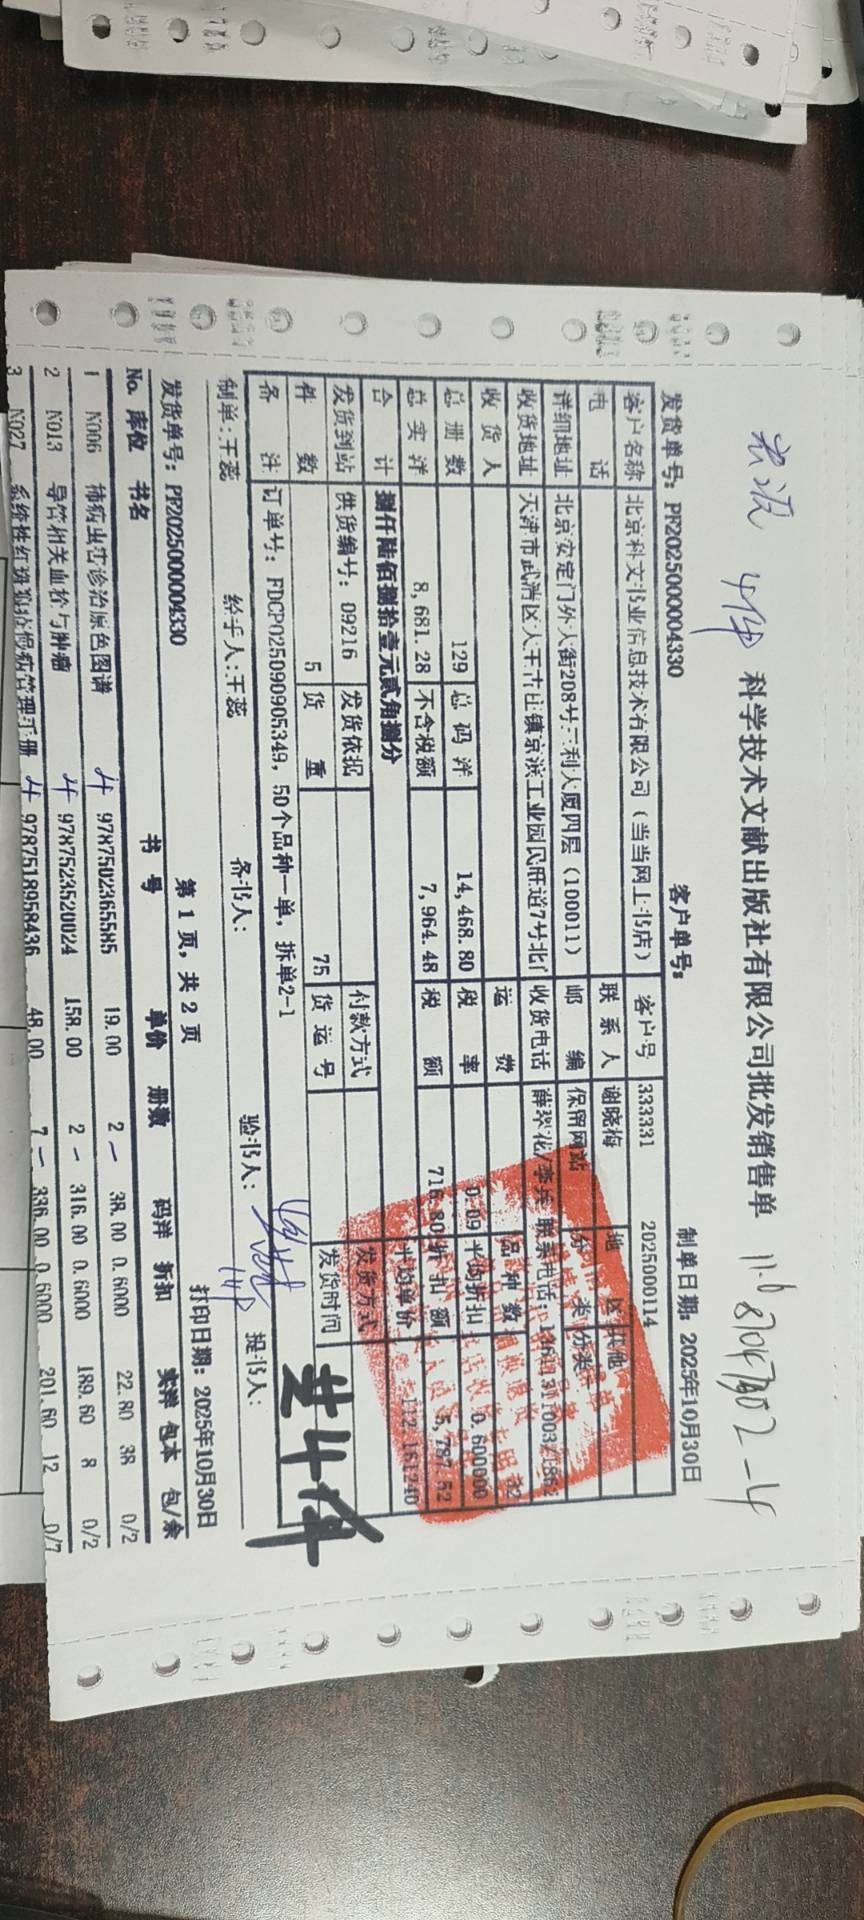 4件 科学技术文献出版社有限公司批发销售单 11.6
发货单号: PF2025000004330 客户单号: 制单日期: 2025年10月30日
客户名称 北京科文书业信息技术有限公司（当当网上书店） 客户号 333331 2025000114
电话 联系人 谢晓梅 地区 其他
详细地址 北京安定门外大街208号三利大厦四层（100011） 邮编 保留网站 分类
收货地址 天津市武清区大王古庄镇京滨工业园民旺道7号北门 收货电话 联系电话:
收货人 运费 品种数
总册数 129 总码洋 14,468.80 税率 0.09 平均折扣 0.600000
总实洋 8,681.28 不含税额 7,964.48 税额 716.80 折扣额 5,787.52
合计 捌仟陆佰捌拾壹元贰角捌分 平均单价 112.161240
发货到站 供货编号: 09216 发货依据 付款方式 发货方式
件数 5 货重 75 货运号 发货时间
备注 订单号: FDCP025090905349, 50个品种一单, 拆单2-1
共4件
制单:王蕊 经手人:王蕊 备书人: 验书人: 提书人:
打印日期: 2025年10月30日
发货单号: PF2025000004330 第 1 页, 共 2 页
No. 库位 书名 书号 单价 册数 码洋 折扣 实洋 包本 包/余
1 N006 柿病虫害诊治原色图谱 9787502365585 19.00 2 38.00 0.6000 22.80 38 0/2
2 N013 导管相关血栓与肿瘤 9787523520024 158.00 2 316.00 0.6000 189.60 8 0/2
3 N027 系统性红斑狼疮慢病管理手册 9787518958436 48.00 7 336.00 0.6000 201.60 12 0/7